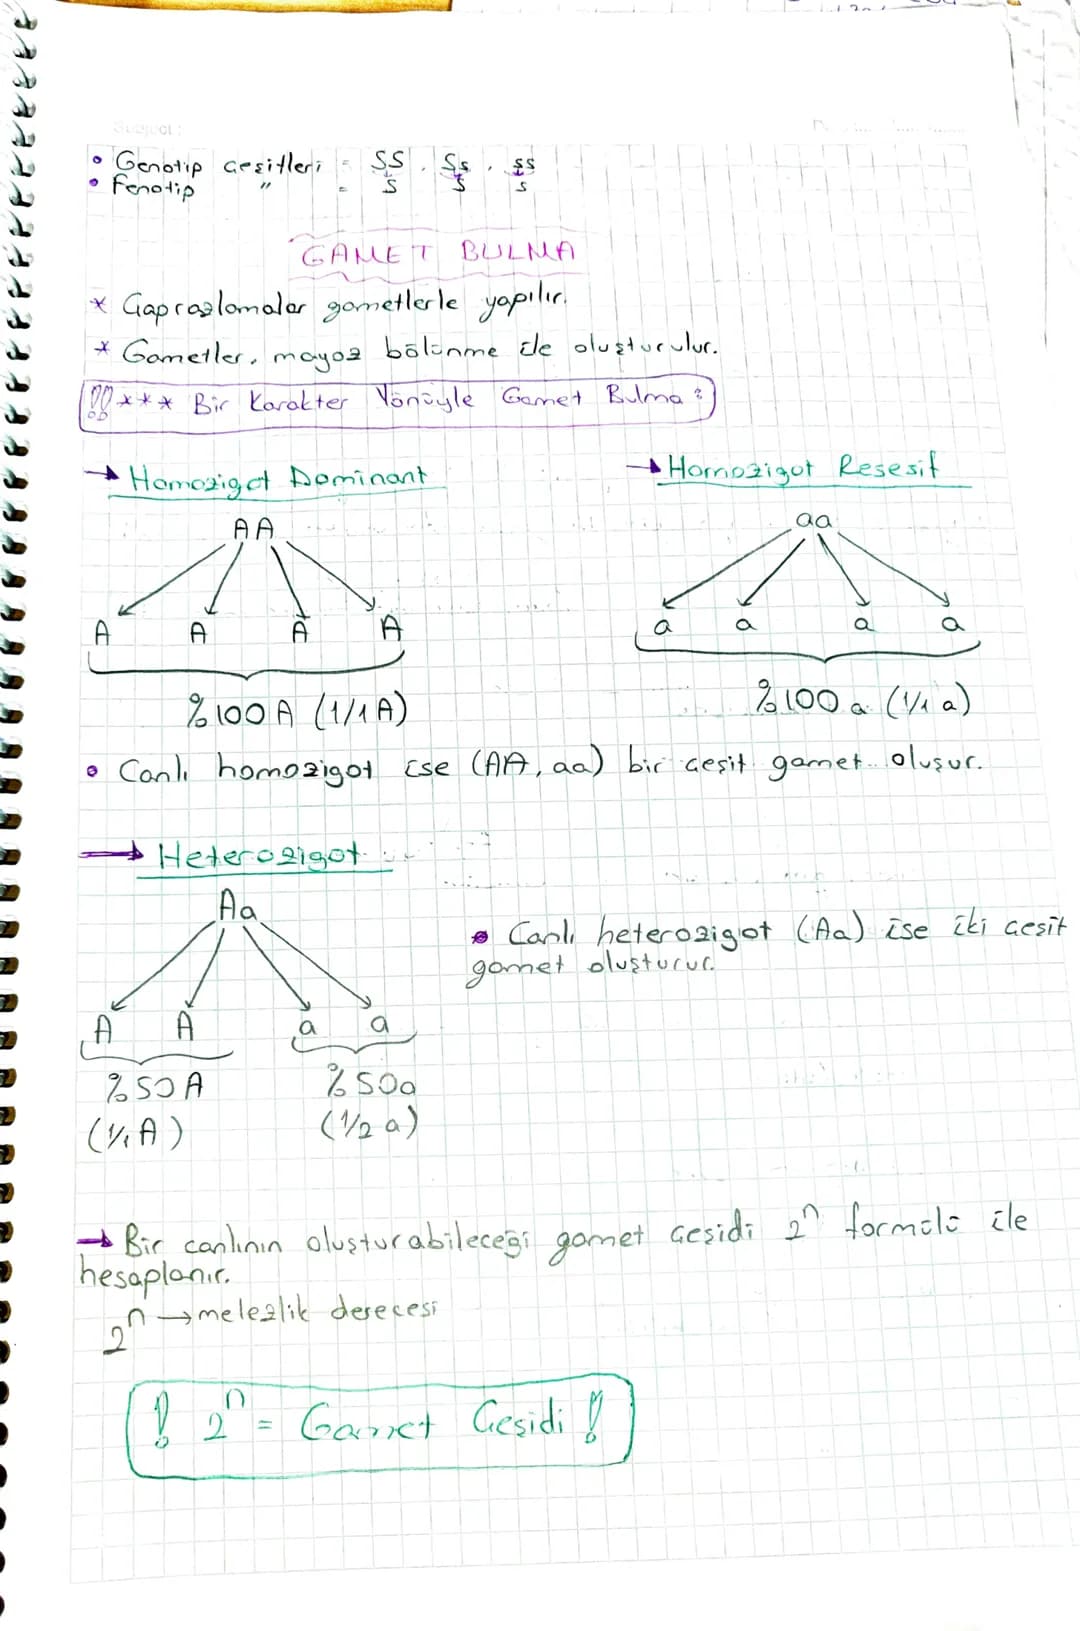 • Genotip çeşitleri = SS . Ss . ss
• Fenotip " = S S s
GAMET BULMA
* Çaprazlamalar gametlerle yapılır.
* Gametler, mayoz bölünme ile oluşturulur.
!!*** Bir Karakter Yönüyle Gamet Bulma :
→ Homozigot Dominant
→ Homozigot Resesif
AA
aa
A A A A
a a a a
%100 A (1/1 A)
%100 a (1/1 a)
• Canlı homozigot ise (AA, aa) bir çeşit gamet oluşur.
→ Heterozigot
Aa
• Canlı heterozigot (Aa) ise iki çeşit
gamet oluşturur.
A A a a
%50 A %50a
(1/1 A) (1/2 a)
→ Bir canlının oluşturabileceği gamet çeşidi 2ⁿ formülü ile
hesaplanır.
2ⁿ → melezlik derecesi
! 2ⁿ = Gamet Çeşidi !